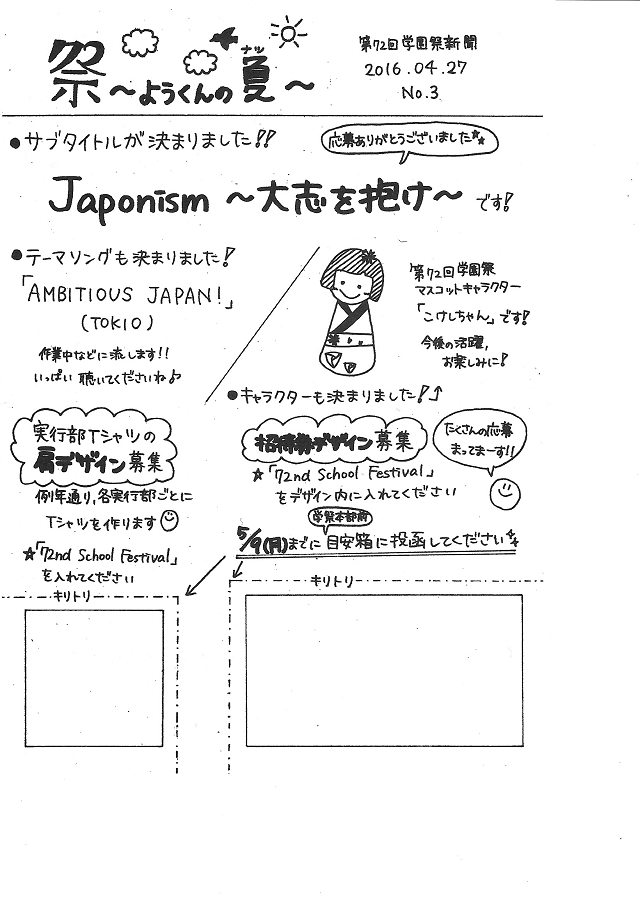 祭～ようくんの夏～
ナツ
第72回学園祭新聞
2016.04.27
No.3
●サブタイトルが決まりました!!
応募ありがとうございました☆☆
Japonism ～大志を抱け～ です!
●テーマソングも決まりました!
「AMBITIOUS JAPAN!」
(TOKIO)
作業中などに流します!!
いっぱい聴いてくださいね♪
第72回学園祭
マスコットキャラクター
「こけしちゃん」です!
今後の活躍,
お楽しみに!
●キャラクターも決まりました!↑
実行部Tシャツの
肩デザイン募集
例年通り,各実行部ごとに
Tシャツを作ります
☆「72nd School Festival」
を入れてください
招待券デザイン募集
たくさんの応募
まってまーす!!
☆「72nd School Festival」
をデザイン内に入れてください
学祭本部前
5/9(月)までに目安箱に投函してください
キリトリ
キリトリ